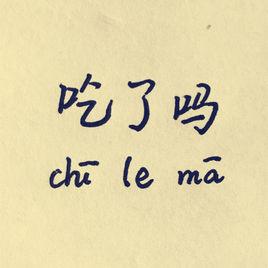 吃了吗
chī le mā